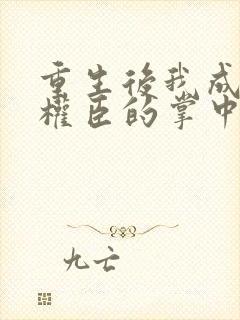 重生後我成
權臣的掌中
九亡